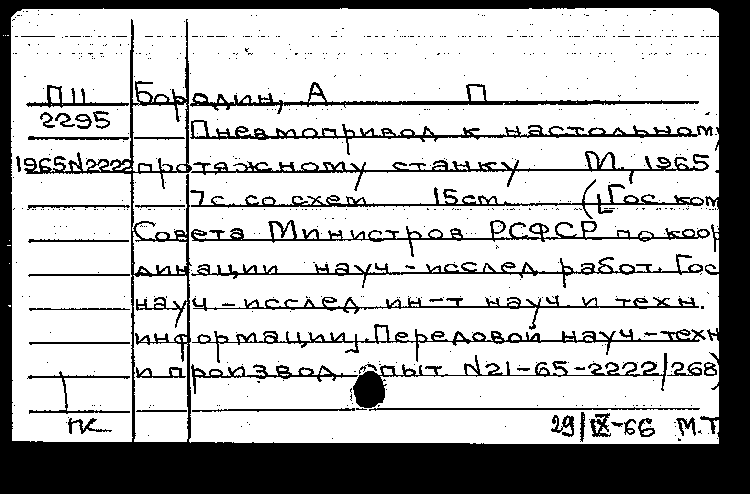 П11 Бородин, А П
2295 Пневмопривод к настольному
1965N2222 протяжному станку М., 1965.
7с со схем 15cm. ([Гос ком
Совета Министров РСФСР по коор
динации науч.-исслед работ. Гос
науч.-исслед ин-т науч. и техн.
информации]. Передовой науч.-техн
и производ. опыт N21-65-2222/268)
ПК 29/IX-66 М.Т.